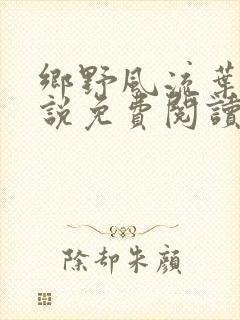 鄉野風流葉
說免費閱讀
除却朱顏